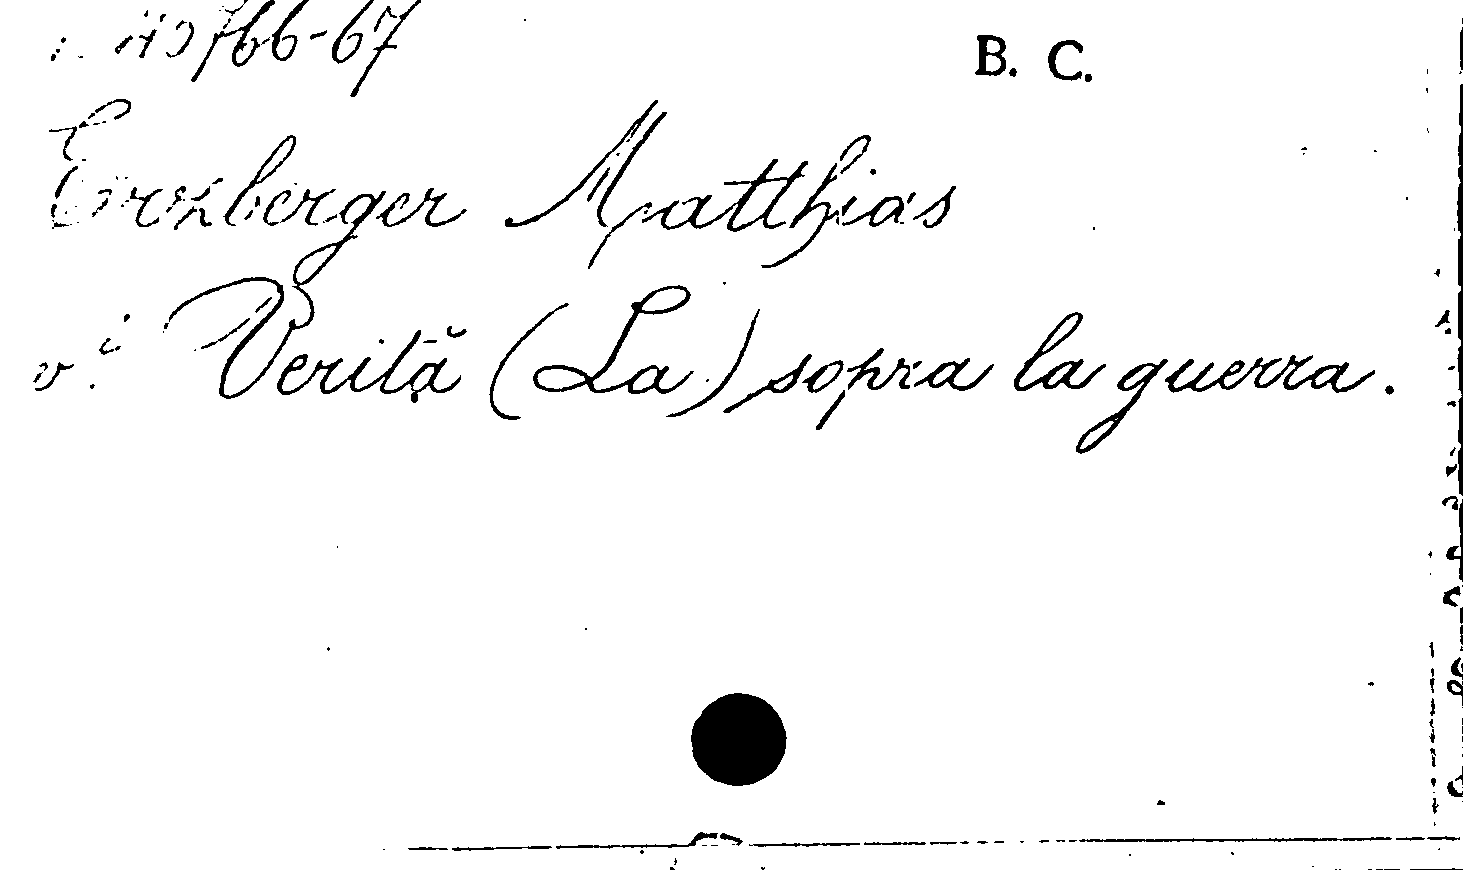 B. C.
Erzberger Matthias
v.i Verità (La) sopra la guerra.